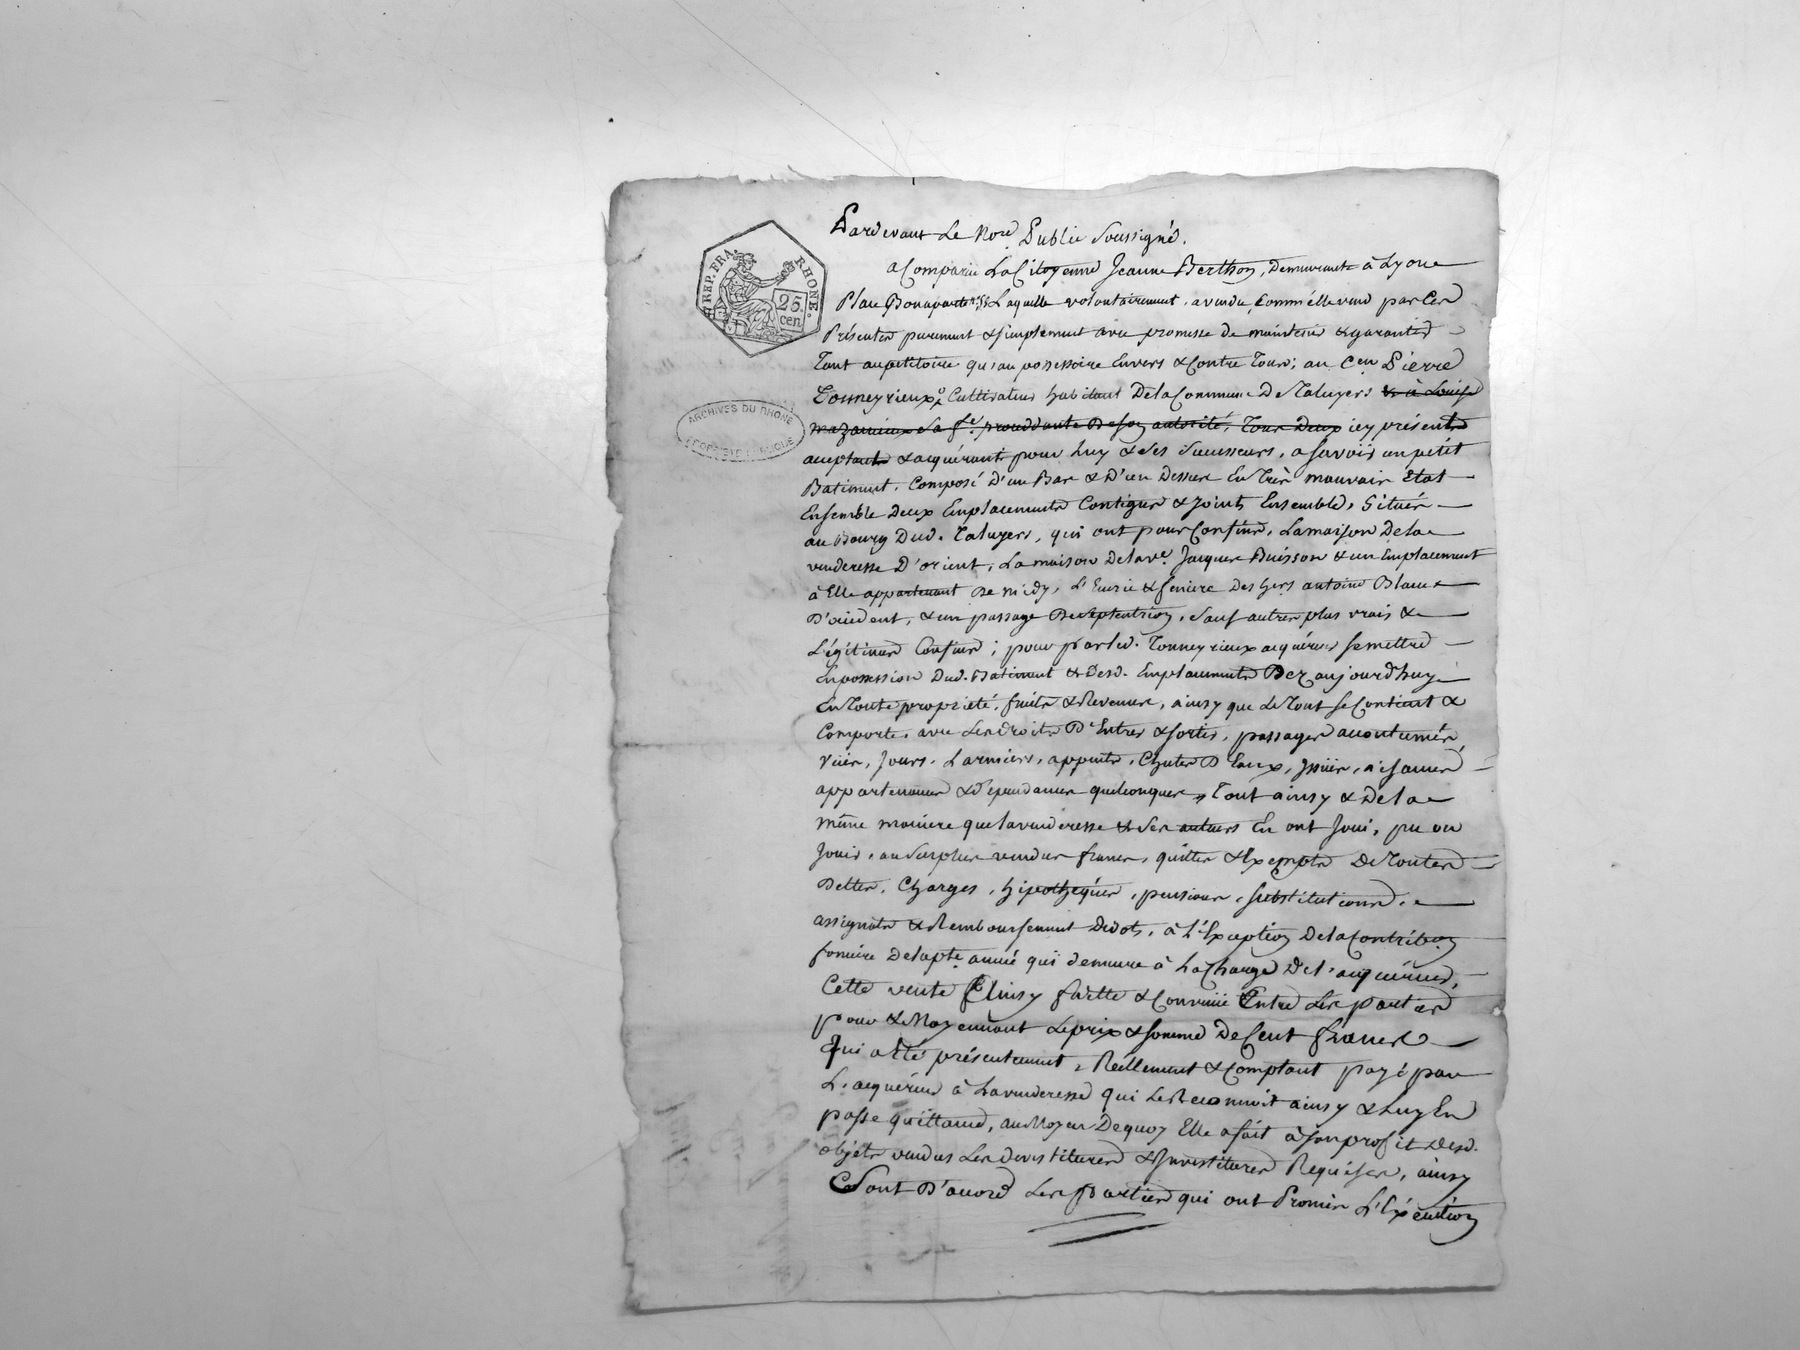 REP. FRA. RHONE.
25. cen.
Pardevant Le Nore Public Soussigné.
a Comparu La Citoyenne Jeanne Berthon, demeurante à Lyon
Place Bonaparte, Laquelle volontairement, a vendu Comm'elle vend par Ces
Présentes purement & simplement avec promesse de maintenir & garantir
Tant au petitoire qu'au possessoire Envers & Contre Tous; au Cen Pierre
Tonneyrieux Cultivateur habitant De la Commune De Taluyers & à Louise
sa fe. procédante De son autorité, Tous Deux icy présents
ARCHIVES DU RHONE
acceptants & acquérants pour Luy & ses Successeurs, a savoir un petit
Batiment, Composé D'un Bas & D'un Dessus En Très mauvais Etat
Ensemble Deux Emplacements Contigus & Joints Ensemble, Situés
au Bourg Dud. Taluyers, qui ont pour Confins, La maison De la
venderesse D'orient, La maison De la ve. Jacques Buisson & un Emplacement
à Elle appartenant De midy, L'Ecurie & feniere Des hers antoine Blanc
D'occident, & un passage De septentrion, Sauf autres plus vrais &
Légitimes Confins; pour par Led. Tonneyrieux acquéreur se mettre
En possession Dud. Batiment & Desd. Emplacements Dez aujourd'huy
En Toute propriété, fruits & Revenus, ainsy que Le Tout se Contient &
Comporte, avec Les droits D'Entrés & sortis, passages accoutumés,
Vües, Jours, Larmiers, appuits, Chutes D'Eaux, Issües, aisances
appartenances & Dépendances quelconques, Tout ainsy & De la
même maniere que la venderesse & Ses auteurs En ont Joui, pu ou
Jouir, au surplus vendus francs, quittes & Exempts De Toutes
Dettes, Charges, hipothèques, pensions, Substitutions,
assignats & Remboursement De dots, à L'Exception De la Contribon
fonciere De la pte. année qui demeure à La Charge De L'acquéreur,
Cette vente Ainsy faitte & Convenüe Entre Les parties
pour & Moyennant Le prix & somme De Cent francs
Qui a Eté présentement, Réellement & Comptant payé par
L'acquéreur à La venderesse qui Le Reconnoit ainsy & Luy En
passe quittance, au Moyen De quoy Elle a fait à son profit Desd.
objets vendus Les Devestitures & Investitures Requises, ainsy
Sont D'accord Les parties qui ont Promis L'Exécution